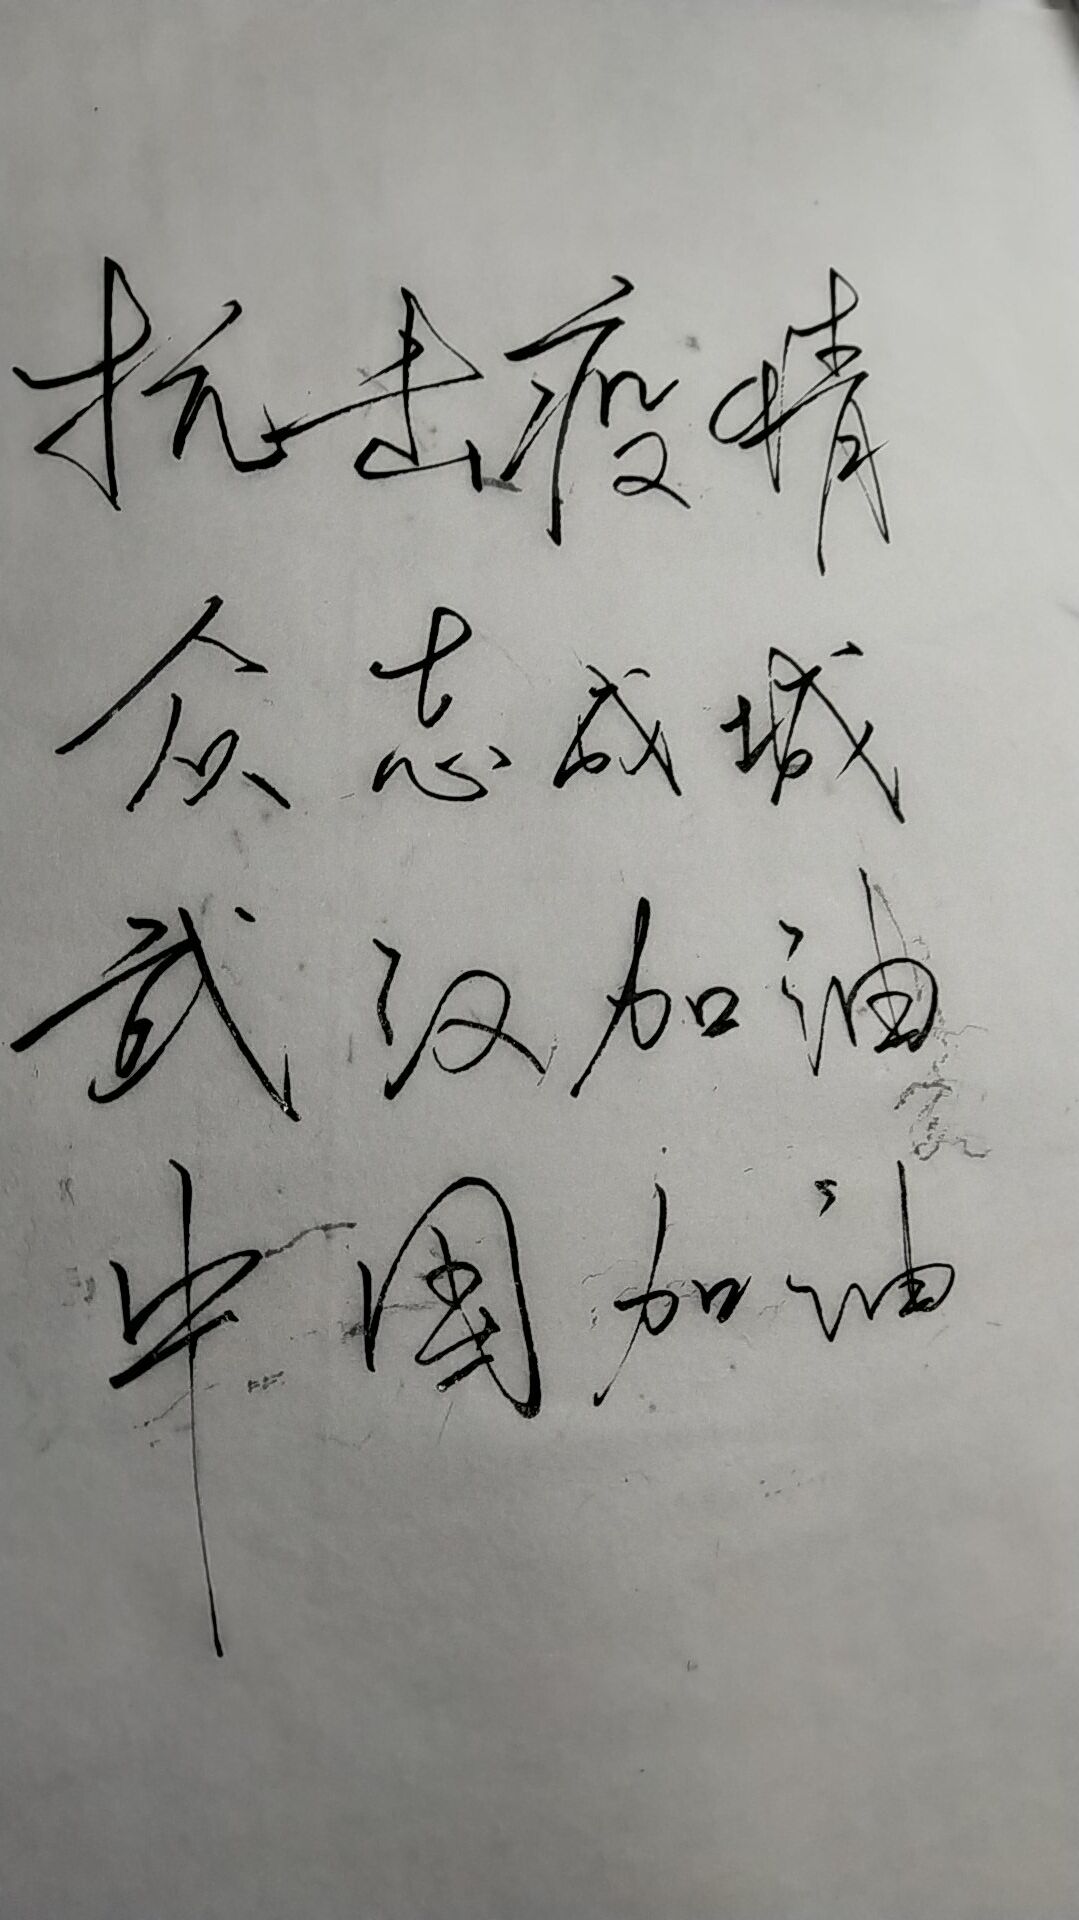 抗击疫情
众志成城
武汉加油
中国加油